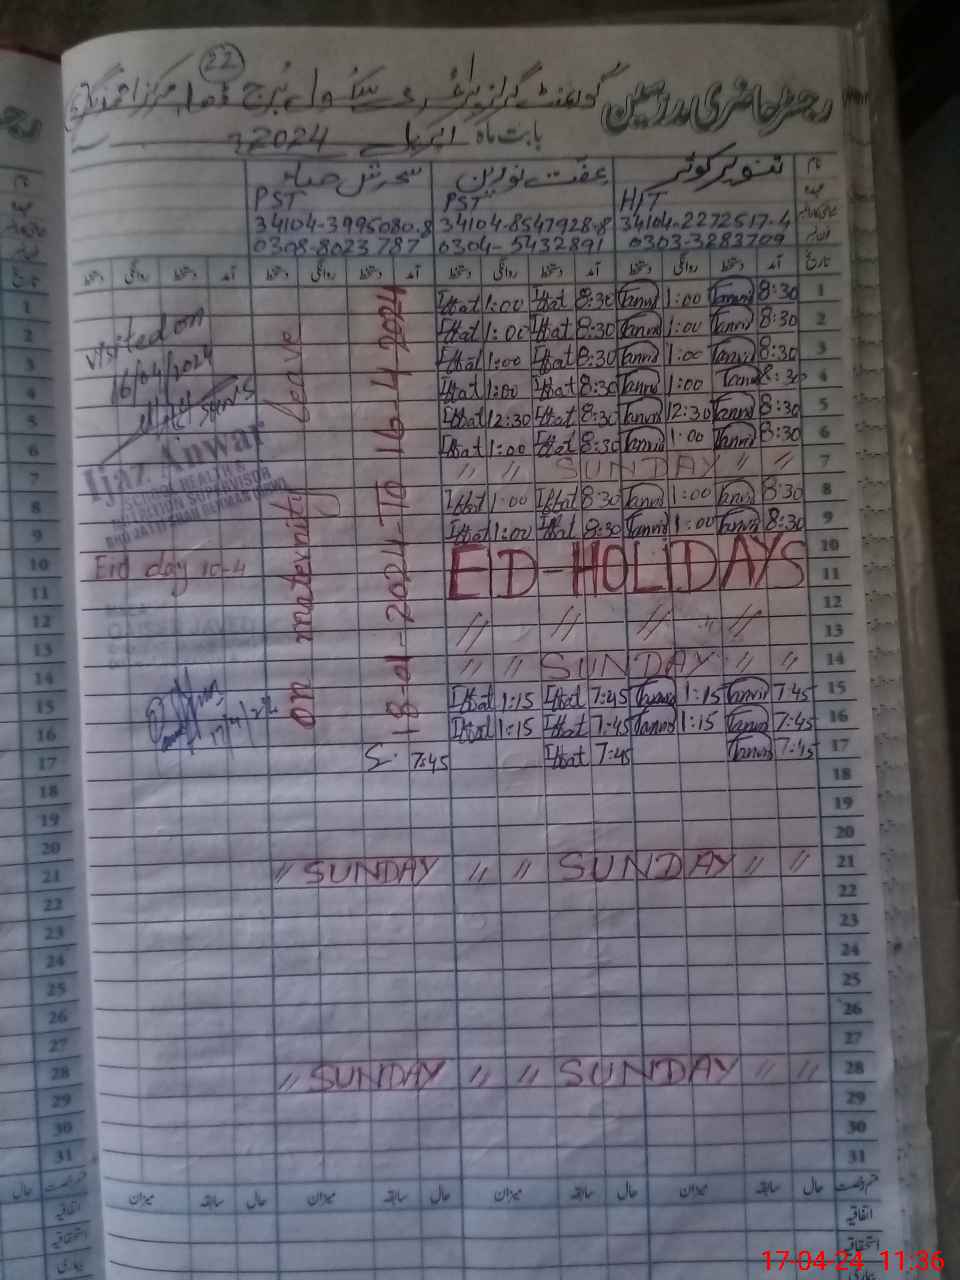 22
رجسٹر حاضری مدرسین گورنمنٹ گرلز پرائمری سکول برج مرکز
بابت ماہ اپریل 2024ء
نام تنویر کوثر عفت نورین سحرش صابر
عہدہ H/T PST PST
34104-2272517-4 34104-8547928-8 34104-3995080-8
0303-3283709 0304-5432891 0308-8023787
تاریخ آمد دستخط روانگی دستخط آمد دستخط روانگی دستخط آمد دستخط روانگی دستخط آمد دستخط روانگی دستخط
1 8:30 Tanvir 1:00 Tanvir 8:30 Iffat 1:00 Iffat 1
2 8:30 Tanvir 1:00 Tanvir 8:30 Iffat 1:00 Iffat 2
3 8:30 Tanvir 1:00 Tanvir 8:30 Iffat 1:00 Iffat 3
4 8:30 Tanvir 1:00 Tanvir 8:30 Iffat 1:00 Iffat 4
5 8:30 Tanvir 12:30 Tanvir 8:30 Iffat 12:30 Iffat 5
6 8:30 Tanvir 1:00 Tanvir 8:30 Iffat 1:00 Iffat 6
7 〃 〃 SUNDAY 〃 〃 7
8 8:30 Tanvir 1:00 Tanvir 8:30 Iffat 1:00 Iffat 8
9 8:30 Tanvir 1:00 Tanvir 8:30 Iffat 1:00 Iffat 9
10 10
11 EID-HOLIDAYS 11
12 12
13 〃 〃 〃 〃 13
14 〃 〃 SUNDAY 〃 〃 14
15 7:45 Tanvir 1:15 Tanvir 7:45 Iffat 1:15 Iffat 15
16 7:45 Tanvir 1:15 Tanvir 7:45 Iffat 1:15 Iffat 16
17 7:45 Tanvir 7:45 Iffat 7:45 S. 17
on maternity leave
18-01-2024-To 16-4-2024
visited on
16/04/2024
Ijaz Anwar
SCHOOL HEALTH &
NUTRITION SUPERVISOR
Eid day 10-4
17/4/24
18 18
19 19
20 20
21 〃 SUNDAY 〃 〃 SUNDAY 〃 〃 21
22 22
23 23
24 24
25 25
26 26
27 27
28 〃 SUNDAY 〃 〃 SUNDAY 〃 〃 28
29 29
30 30
31 31
قسم رخصت حال سابقہ میزان حال سابقہ میزان حال سابقہ میزان حال سابقہ میزان حال
اتفاقیہ اتفاقیہ
استحقاقیہ استحقاقیہ
بیماری بیماری
17-04-24 11:36